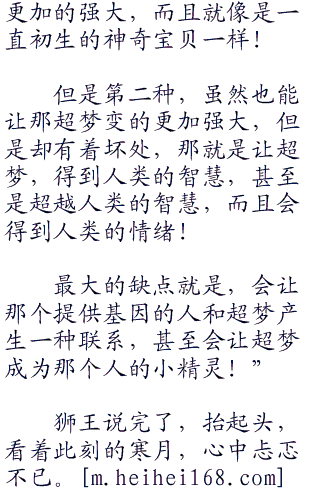 更加的强大，而且就像是一
直初生的神奇宝贝一样！
但是第二种，虽然也能
让那超梦变的更加强大，但
是却有着坏处，那就是让超
梦，得到人类的智慧，甚至
是超越人类的智慧，而且会
得到人类的情绪！
最大的缺点就是，会让
那个提供基因的人和超梦产
生一种联系，甚至会让超梦
成为那个人的小精灵！”
狮王说完了，抬起头，
看着此刻的寒月，心中忐忑
不已。[m.heihei168.com]